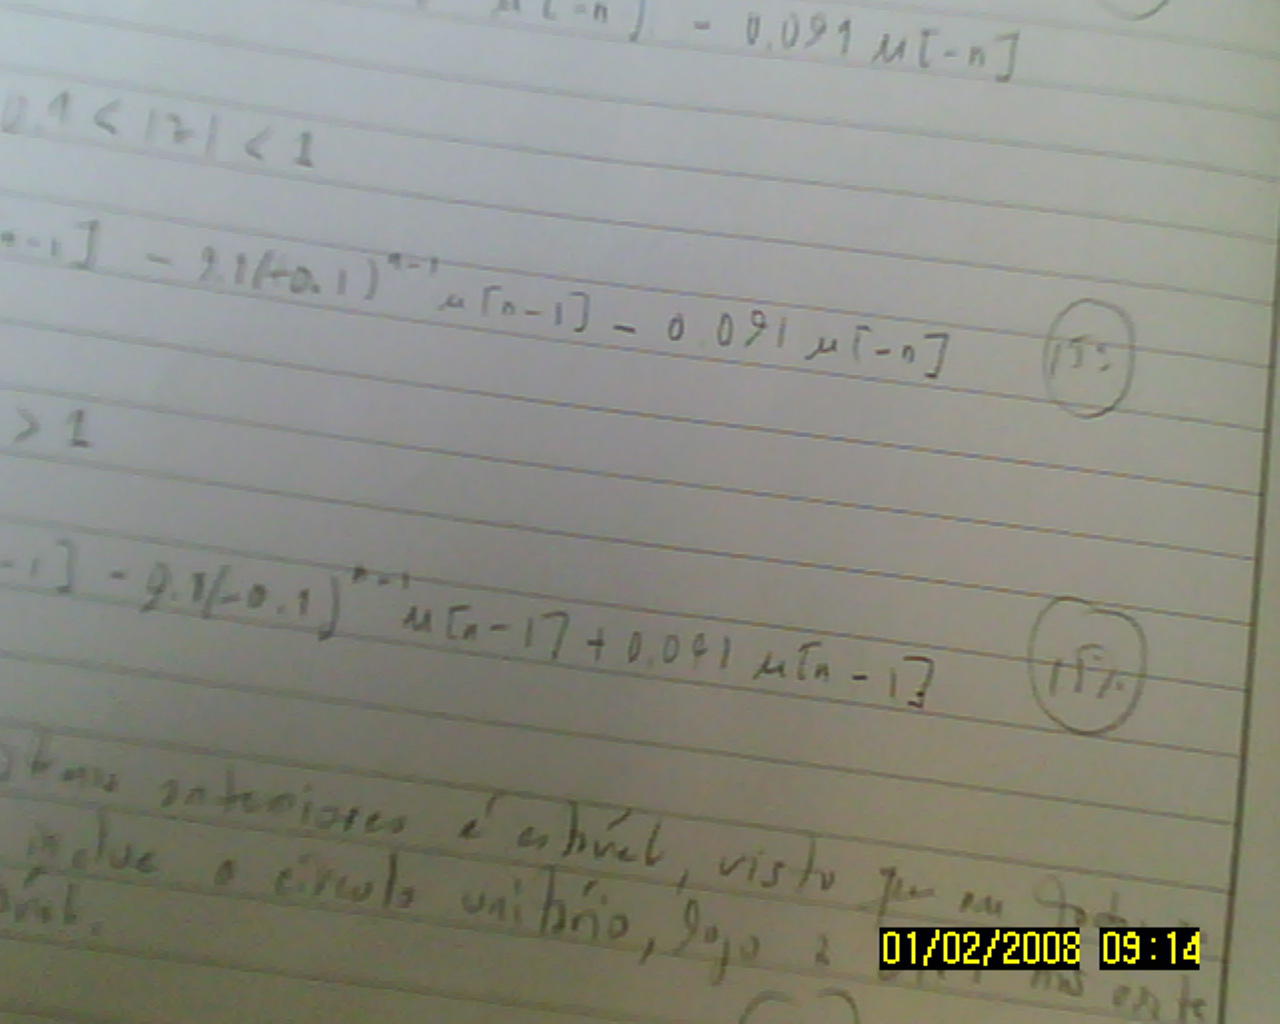 µ[-n] - 0.091 µ[-n]
0.1 < |z| < 1
n-1] - 9.1(-0.1)^n-1 µ[n-1] - 0.091 µ[-n] 15%
> 1
-1] - 9.1(-0.1)^n-1 µ[n-1] + 0.091 µ[n-1] 15%
anteriores é estável, visto que em
inclue o círculo unitário, logo a
01/02/2008 09:14